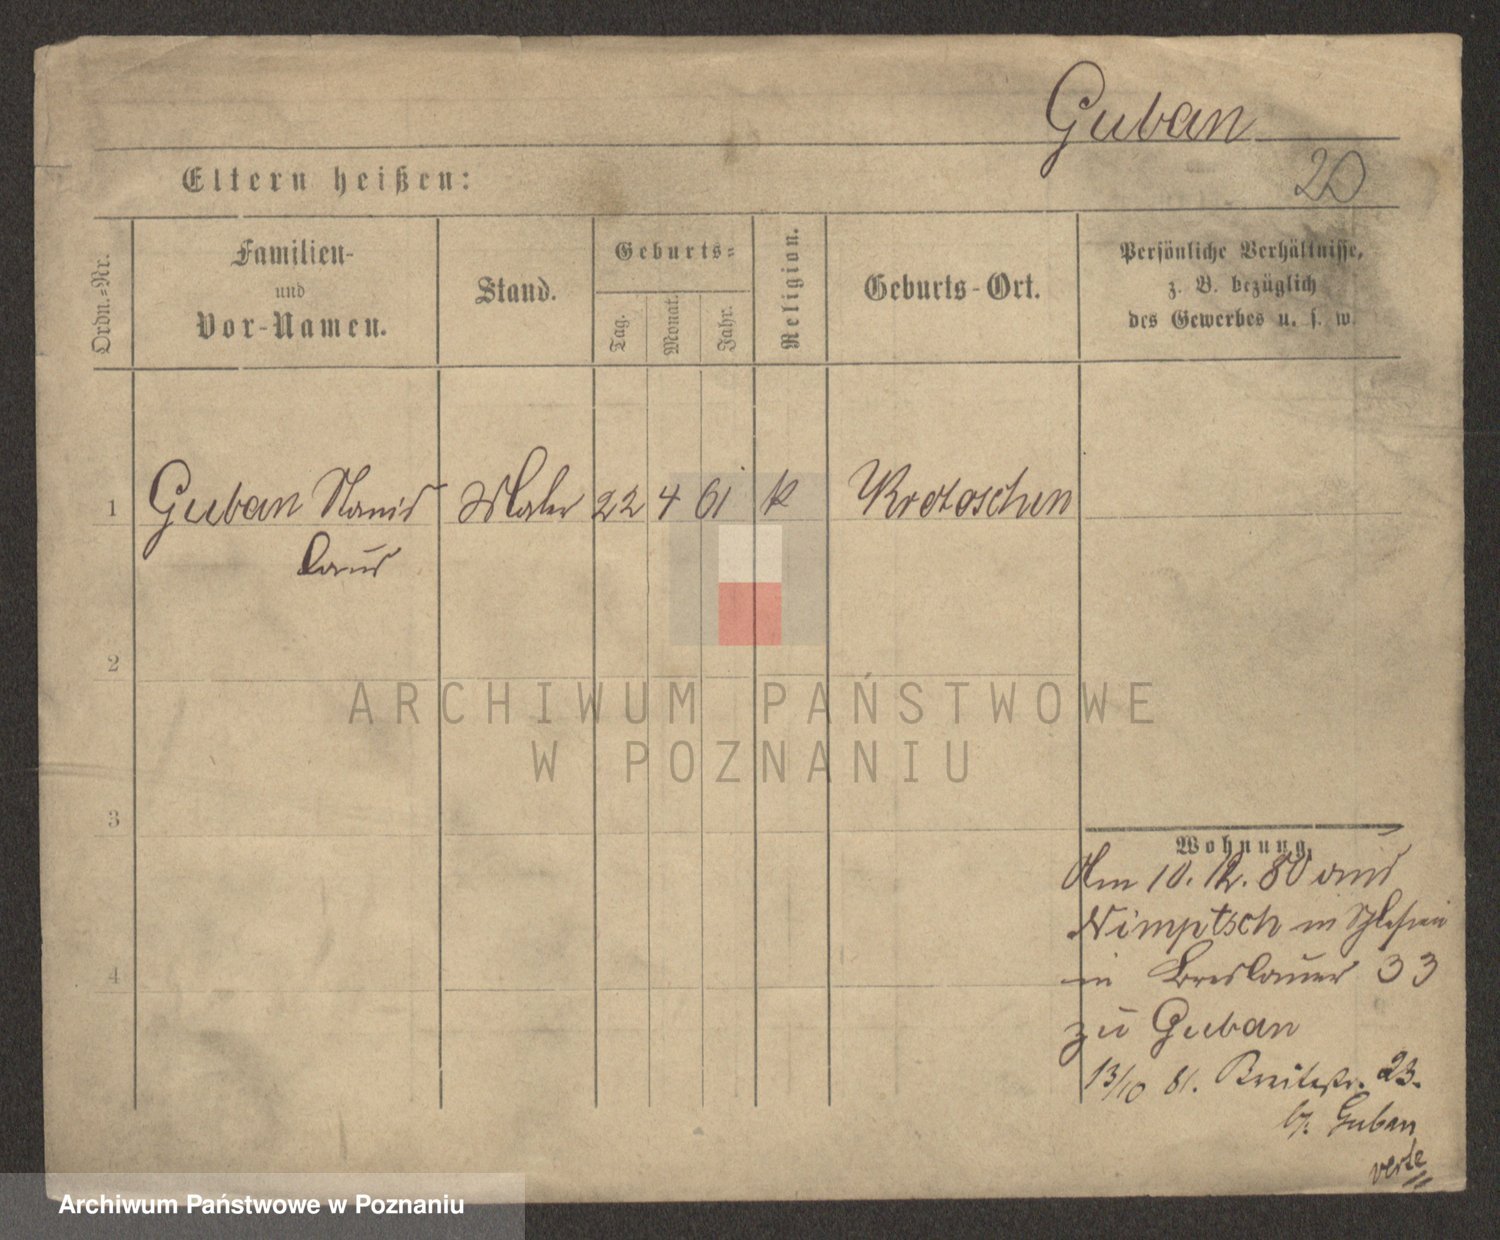 Guban
20
Eltern heißen:
Ordn.-Nr.
Familien-
und
Vor-Namen.
Stand.
Geburts-
Tag.
Monat.
Jahr.
Religion.
Geburts-Ort.
Persönliche Verhältnisse,
z. B. bezüglich
des Gewerbes u. s. w.
1
Guban Stanis
laus
Maler
22
4
61
k
Krotoschin
2
3
4
ARCHIWUM PAŃSTWOWE
W POZNANIU
Wohnung.
Am 10. 12. 80 aus
Nimptsch in Schlesien
in Breslauer 33
zu Guban
13/10 81. Breitestr. 23.
b. Guban
verte
Archiwum Państwowe w Poznaniu